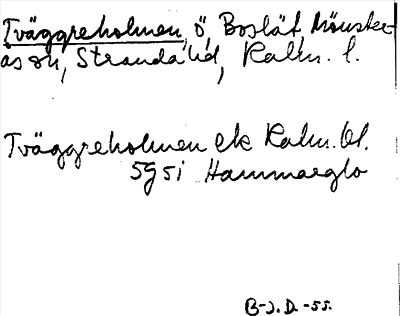 Tväggreholmen, ö, Boslät, Mönster-
ås sn, Stranda hd, Kalm. l.
Tväggreholmen ek Kalm. bl.
5g 5i Hammarglo
B-J.D.-55.